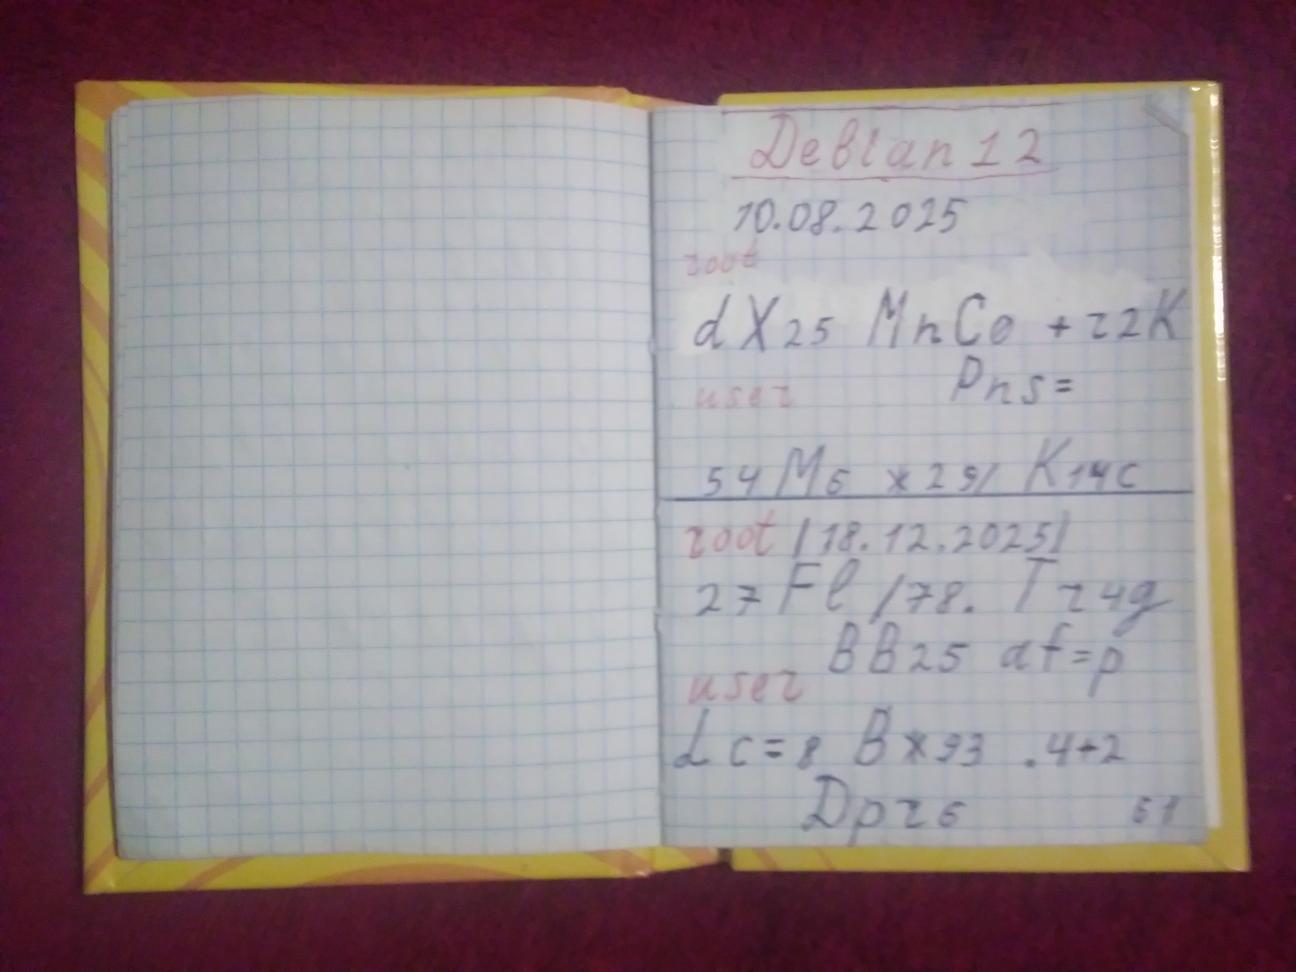 Debian 12
10.08.2025
root
dX25 MnCo +r2K
Pns=
user
54M6 *291 K14c
root /18.12.2025/
27Fl /78. Tr4g
BB25 af=p
user
Lc=8 B*93 .4+2
Dpr6 61